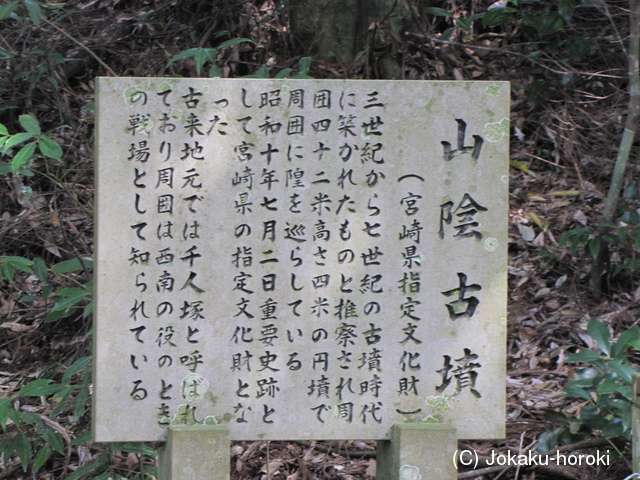 山陰古墳
（宮崎県指定文化財）
三世紀から七世紀の古墳時代
に築かれたものと推察され周
囲四十二米高さ四米の円墳で
周囲に隍を巡らしている
昭和十年七月二日重要史跡と
して宮崎県の指定文化財とな
った
古来地元では千人塚と呼ばれ
ており周囲は西南の役のとき
の戦場として知られている
(C) Jokaku-horoki